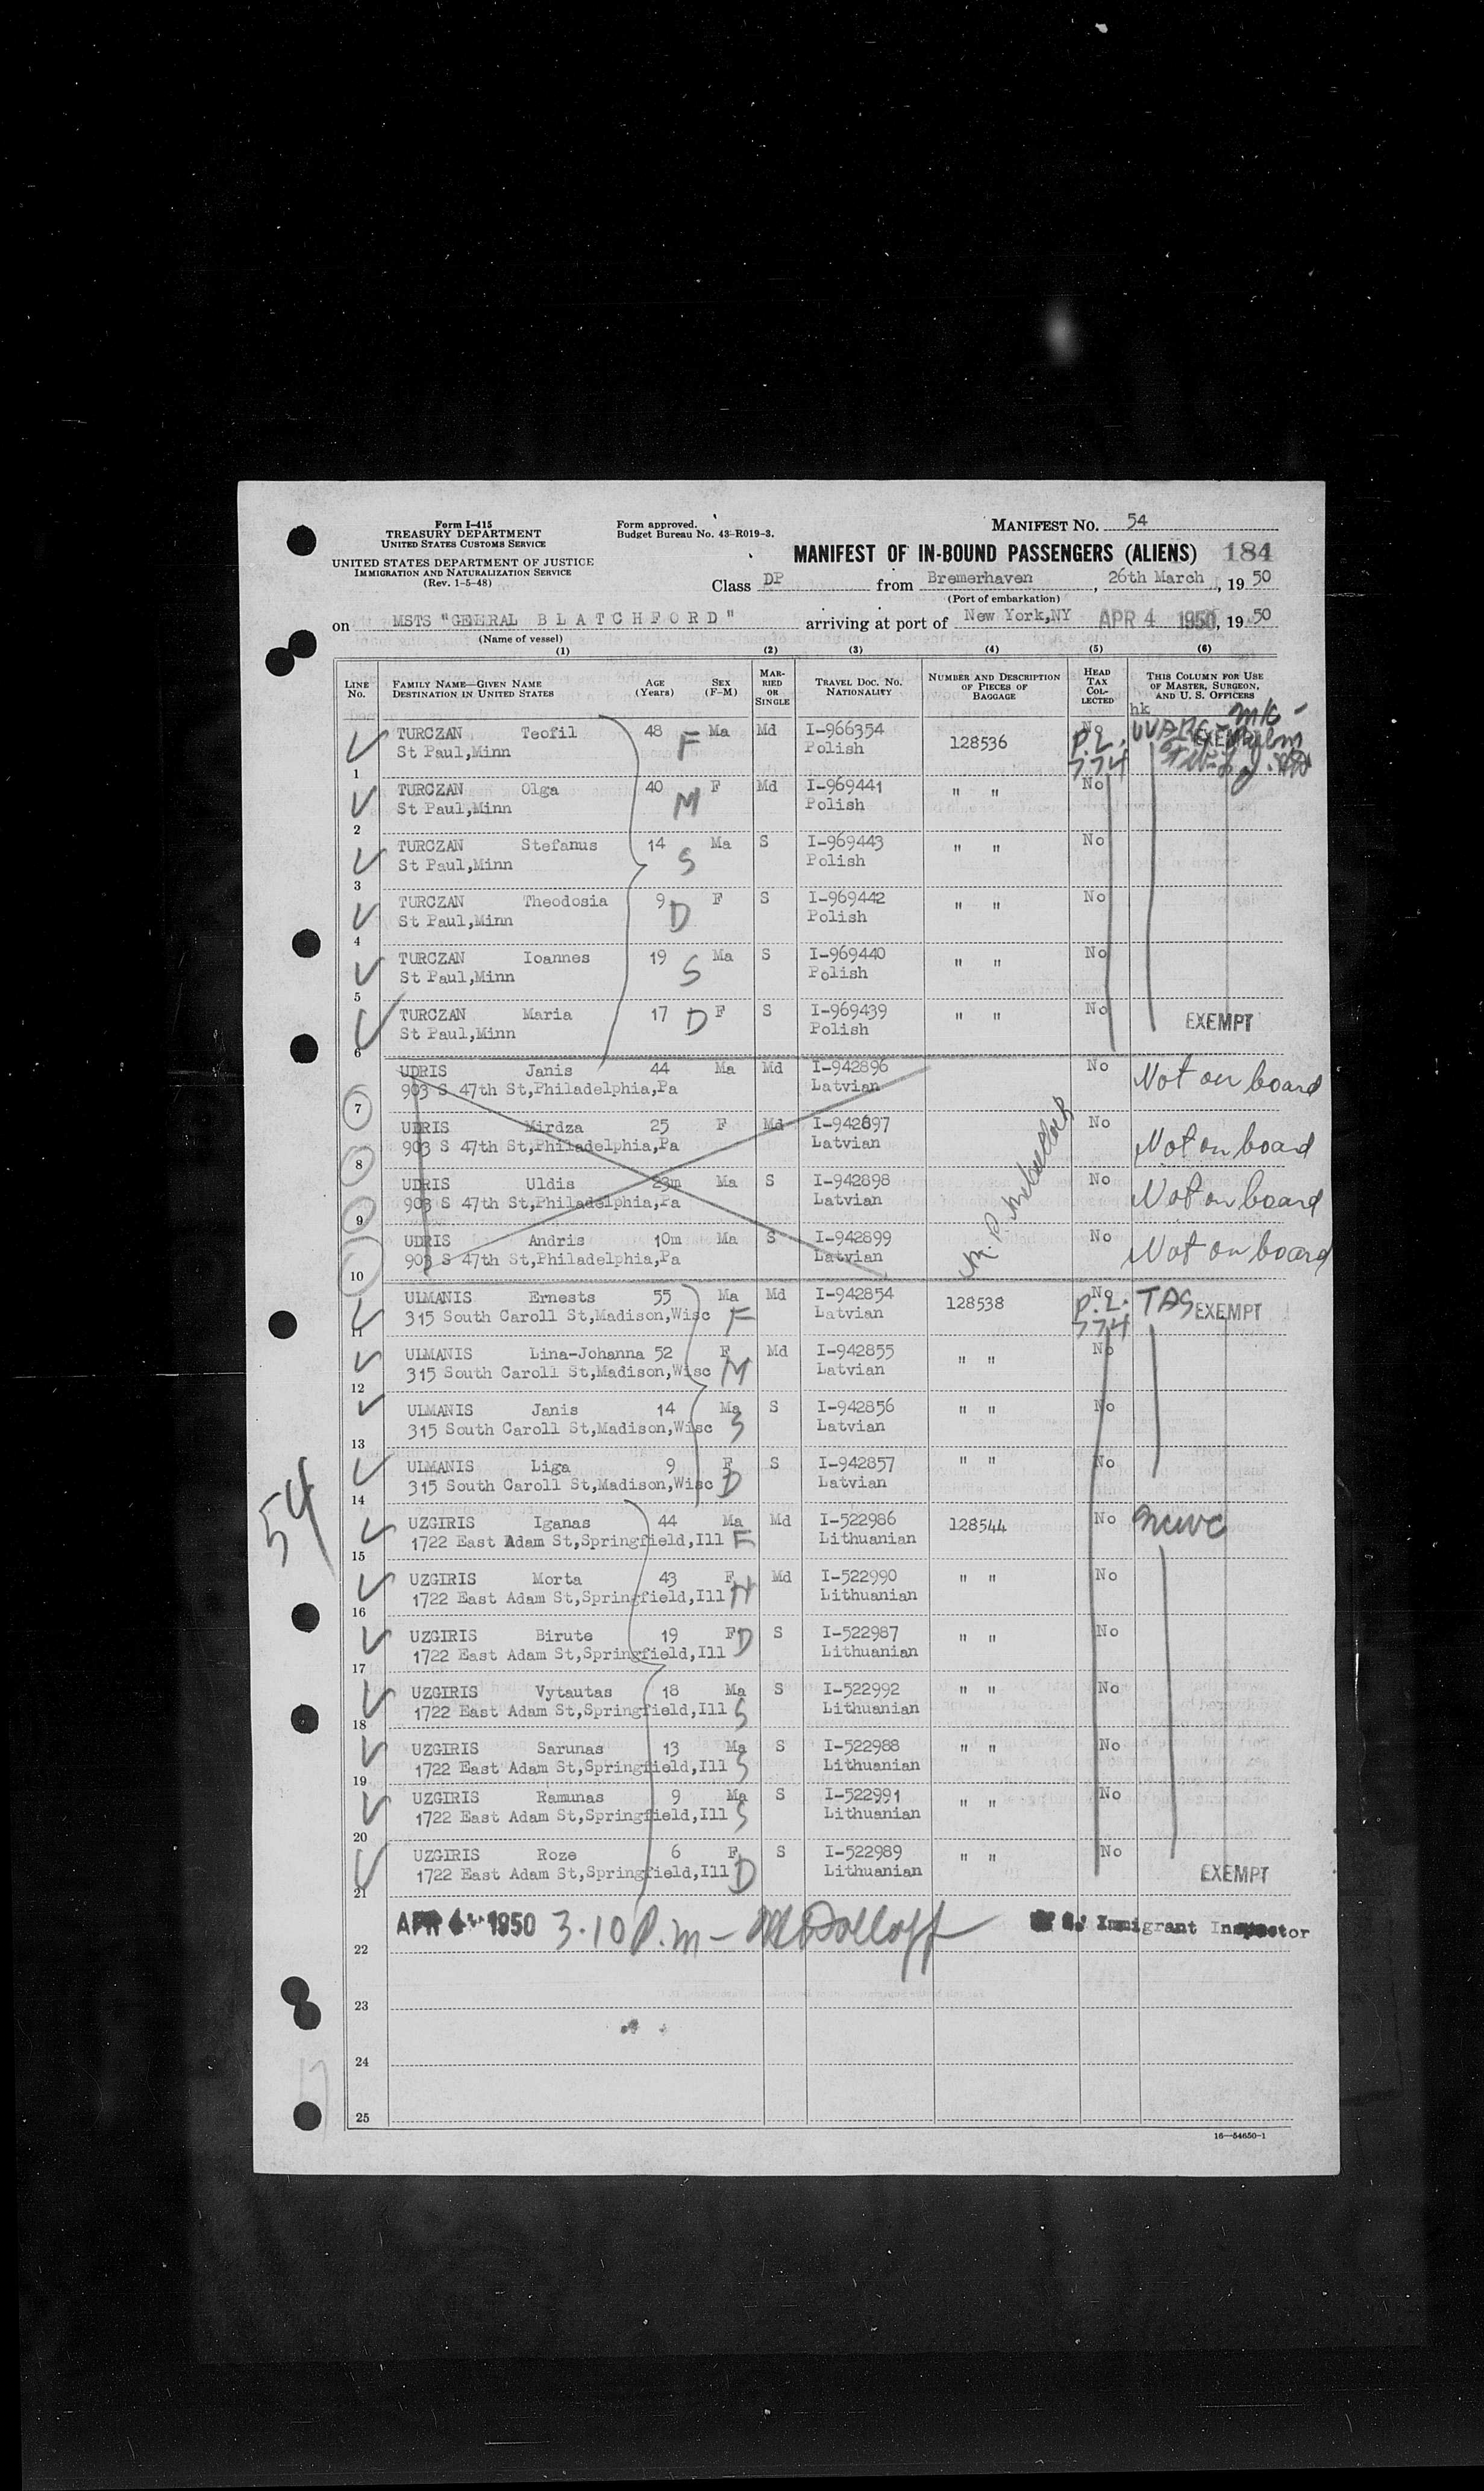 Form I-415
TREASURY DEPARTMENT
UNITED STATES CUSTOMS SERVICE
UNITED STATES DEPARTMENT OF JUSTICE
IMMIGRATION AND NATURALIZATION SERVICE
(Rev. 1-5-48)
Form approved.
Budget Bureau No. 43-R019-3.
MANIFEST NO. 54
MANIFEST OF IN-BOUND PASSENGERS (ALIENS) 184
Class DP from Bremerhaven, 26th March, 1950
(Port of embarkation)
on MSTS "GENERAL B L A T C H F O R D" arriving at port of New York,NY APR 4 1950, 1950
(Name of vessel)
(1) (2) (3) (4) (5) (6)
LINE No. FAMILY NAME—GIVEN NAME DESTINATION IN UNITED STATES AGE (Years) SEX (F-M) MARRIED OR SINGLE TRAVEL DOC. NO. NATIONALITY NUMBER AND DESCRIPTION OF PIECES OF BAGGAGE HEAD TAX COLLECTED THIS COLUMN FOR USE OF MASTER, SURGEON, AND U. S. OFFICERS
hk
TURCZAN Teofil 48 F Ma Md I-966354 128536 No
St Paul,Minn Polish P.L. 774
1
TURCZAN Olga 40 M F Md I-969441 " " No
St Paul,Minn Polish
2
TURCZAN Stefanus 14 S Ma S I-969443 " " No
St Paul,Minn Polish
3
TURCZAN Theodosia 9 D F S I-969442 " " No
St Paul,Minn Polish
4
TURCZAN Ioannes 19 S Ma S I-969440 " " No
St Paul,Minn Polish
5
TURCZAN Maria 17 D F S I-969439 " " No EXEMPT
St Paul,Minn Polish
6
UDRIS Janis 44 Ma Md I-942896 No Not on board
903 S 47th St,Philadelphia,Pa Latvian
7
UDRIS Mirdza 25 F Md I-942897 No Not on board
903 S 47th St,Philadelphia,Pa Latvian
8
UDRIS Uldis 23m Ma S I-942898 No Not on board
903 S 47th St,Philadelphia,Pa Latvian
9
UDRIS Andris 10m Ma S I-942899 No Not on board
903 S 47th St,Philadelphia,Pa Latvian
10
ULMANIS Ernests 55 Ma Md I-942854 128538 No TAS EXEMPT
315 South Caroll St,Madison,Wisc F Latvian P.L. 774
11
ULMANIS Lina-Johanna 52 F Md I-942855 " " No
315 South Caroll St,Madison,Wisc M Latvian
12
ULMANIS Janis 14 Ma S I-942856 " " No
315 South Caroll St,Madison,Wisc S Latvian
13
ULMANIS Liga 9 F S I-942857 " " No
315 South Caroll St,Madison,Wisc D Latvian
14
54
UZGIRIS Iganas 44 Ma Md I-522986 128544 No
1722 East Adam St,Springfield,Ill F Lithuanian
15
UZGIRIS Morta 43 F Md I-522990 " " No
1722 East Adam St,Springfield,Ill M Lithuanian
16
UZGIRIS Birute 19 F D S I-522987 " " No
1722 East Adam St,Springfield,Ill Lithuanian
17
UZGIRIS Vytautas 18 Ma S I-522992 " " No
1722 East Adam St,Springfield,Ill S Lithuanian
18
UZGIRIS Sarunas 13 Ma S I-522988 " " No
1722 East Adam St,Springfield,Ill S Lithuanian
19
UZGIRIS Ramunas 9 Ma S I-522991 " " No
1722 East Adam St,Springfield,Ill S Lithuanian
20
UZGIRIS Roze 6 F S I-522989 " " No
1722 East Adam St,Springfield,Ill D Lithuanian EXEMPT
21
APR 4 1950 3.10 P.m – Immigrant Inspector
22
23
24
25
16—54650-1